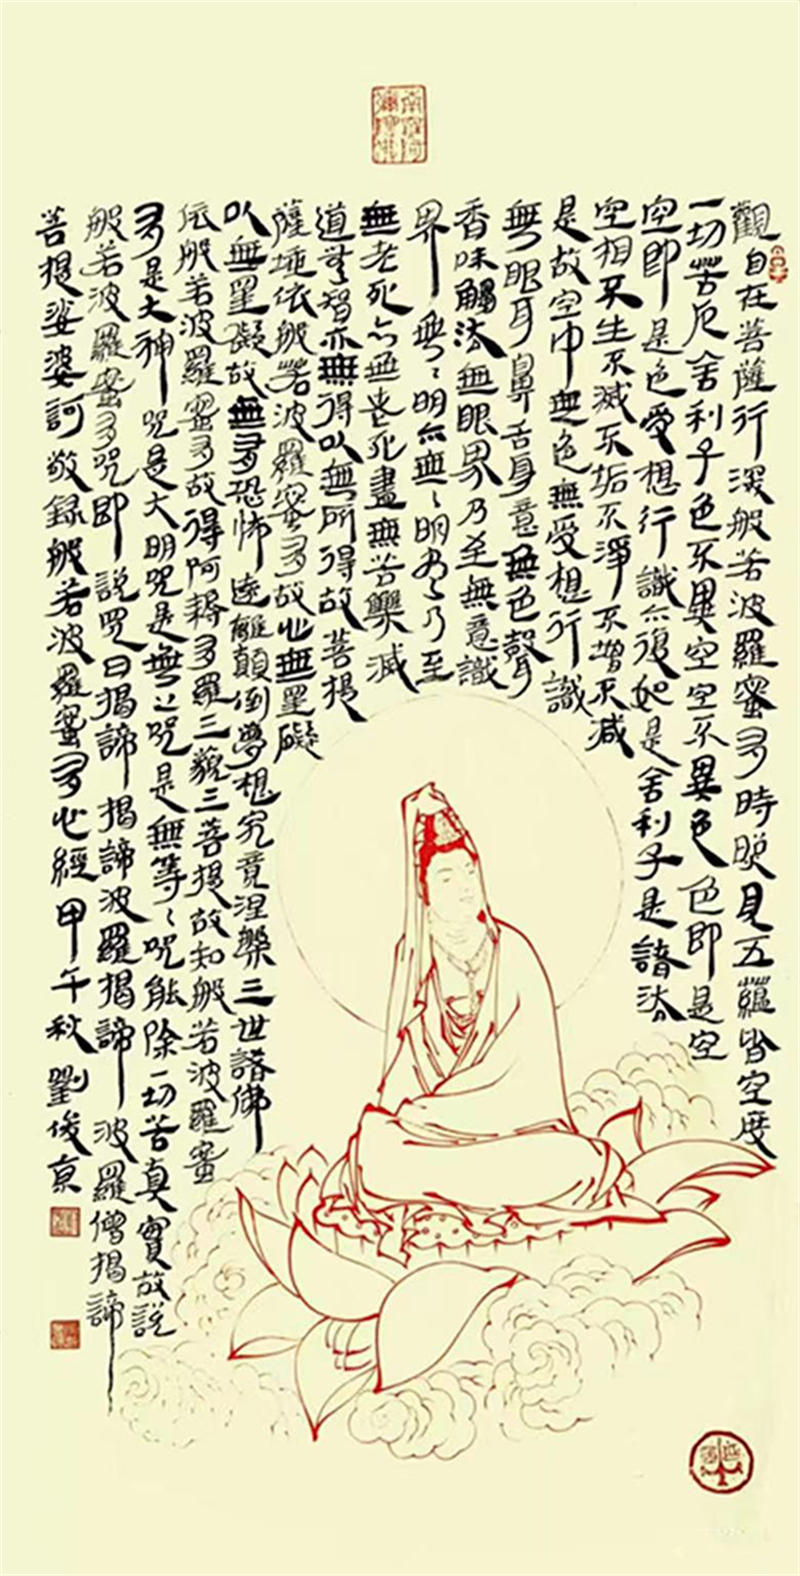 觀自在菩薩行深般若波羅蜜多時照見五蘊皆空度
一切苦厄舍利子色不異空空不異色色即是空
空即是色受想行識亦復如是舍利子是諸法
空相不生不滅不垢不淨不增不減
是故空中無色無受想行識
無眼耳鼻舌身意無色聲
香味觸法無眼界乃至無意識
界無〻明亦無〻明盡乃至
無老死亦無老死盡無苦集滅
道無智亦無得以無所得故菩提
薩埵依般若波羅蜜多故心無罣礙
以無罣礙故無有恐怖遠離顛倒夢想究竟涅槃三世諸佛
依般若波羅蜜多故得阿耨多羅三藐三菩提故知般若波羅蜜
多是大神咒是大明咒是無上咒是無等〻咒能除一切苦真實故說
般若波羅蜜多咒即說咒曰揭諦揭諦波羅揭諦波羅僧揭諦
菩提娑婆訶敬錄般若波羅蜜多心經甲午秋劉俊京